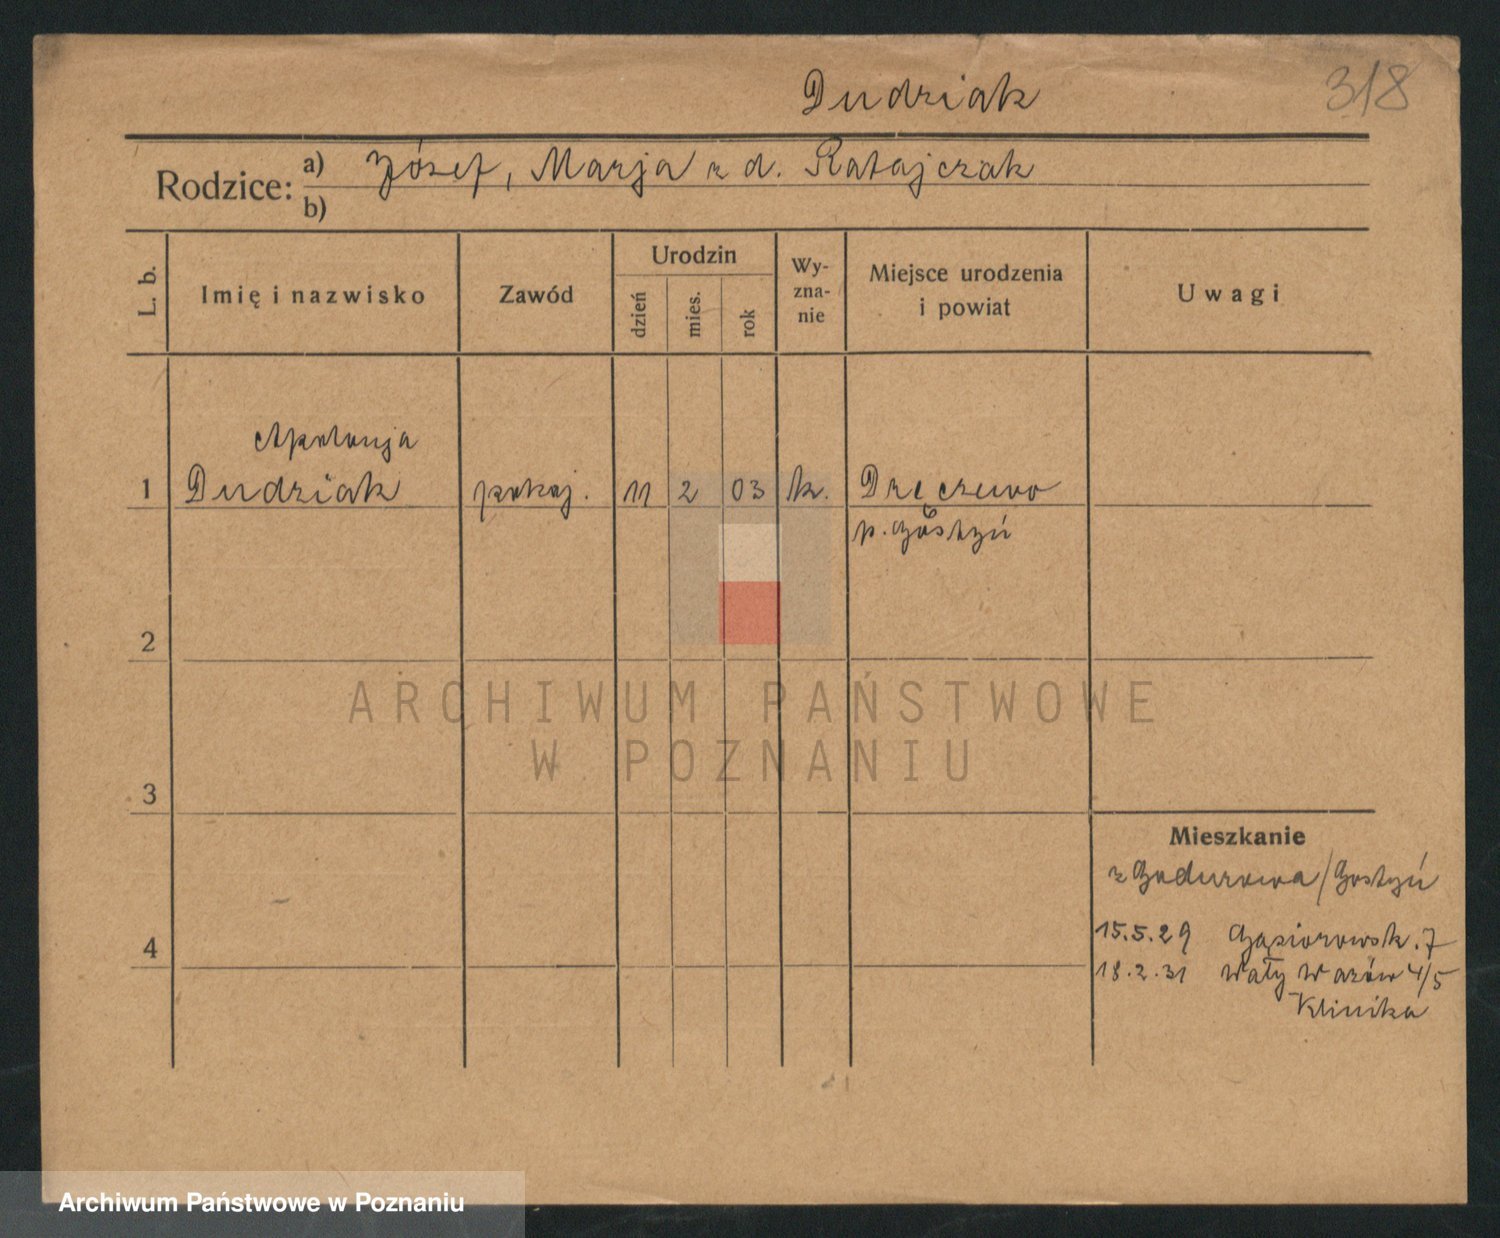 Dudziak
318
Rodzice:
a) Józef, Marja z d. Ratajczak
b)
L. b.
Imię i nazwisko
Zawód
Urodzin
dzień
mies.
rok
Wy-
zna-
nie
Miejsce urodzenia
i powiat
Uwagi
Apolonja
1 Dudziak pokoj. 11 2 03 k. Dzięczewo
p. Gostyń
2
3
4
Mieszkanie
z Godurowa/Gostyń
15.5.29 Gąsiorowsk. 7
18.2.31 Wały Wazów 4/5
Klinika
ARCHIWUM PAŃSTWOWE
W POZNANIU
Archiwum Państwowe w Poznaniu